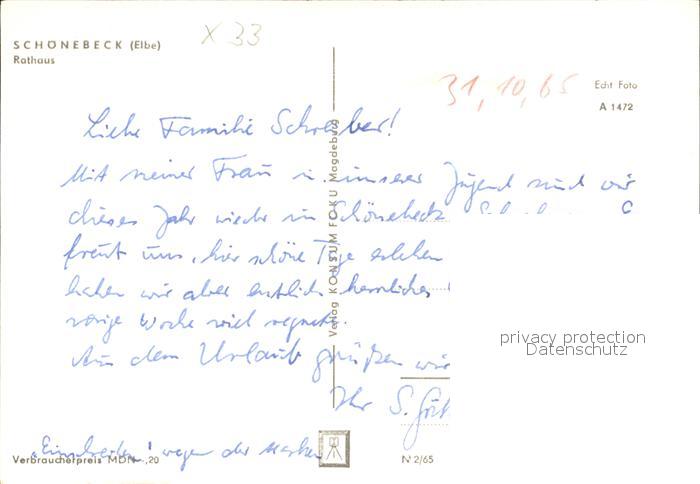 SCHÖNEBECK (Elbe)
Rathaus
X 33
31.10.65
Echt Foto
A 1472
Liebe Familie Schreiber!
Mit meiner Frau u. unserer Jugend sind wir
dieses Jahr wieder in Schönebeck
freut uns, hier schöne Tage erleben
haben wir aber endlich herrliches
vorige Woche viel regnete.
Aus dem Urlaub grüßen wir
Ihr S.
"Einschreiben" wegen der Marken
Verlag KONSUM FOKU Magdeburg
Verbraucherpreis MDN -,20
N 2/65
privacy protection
Datenschutz